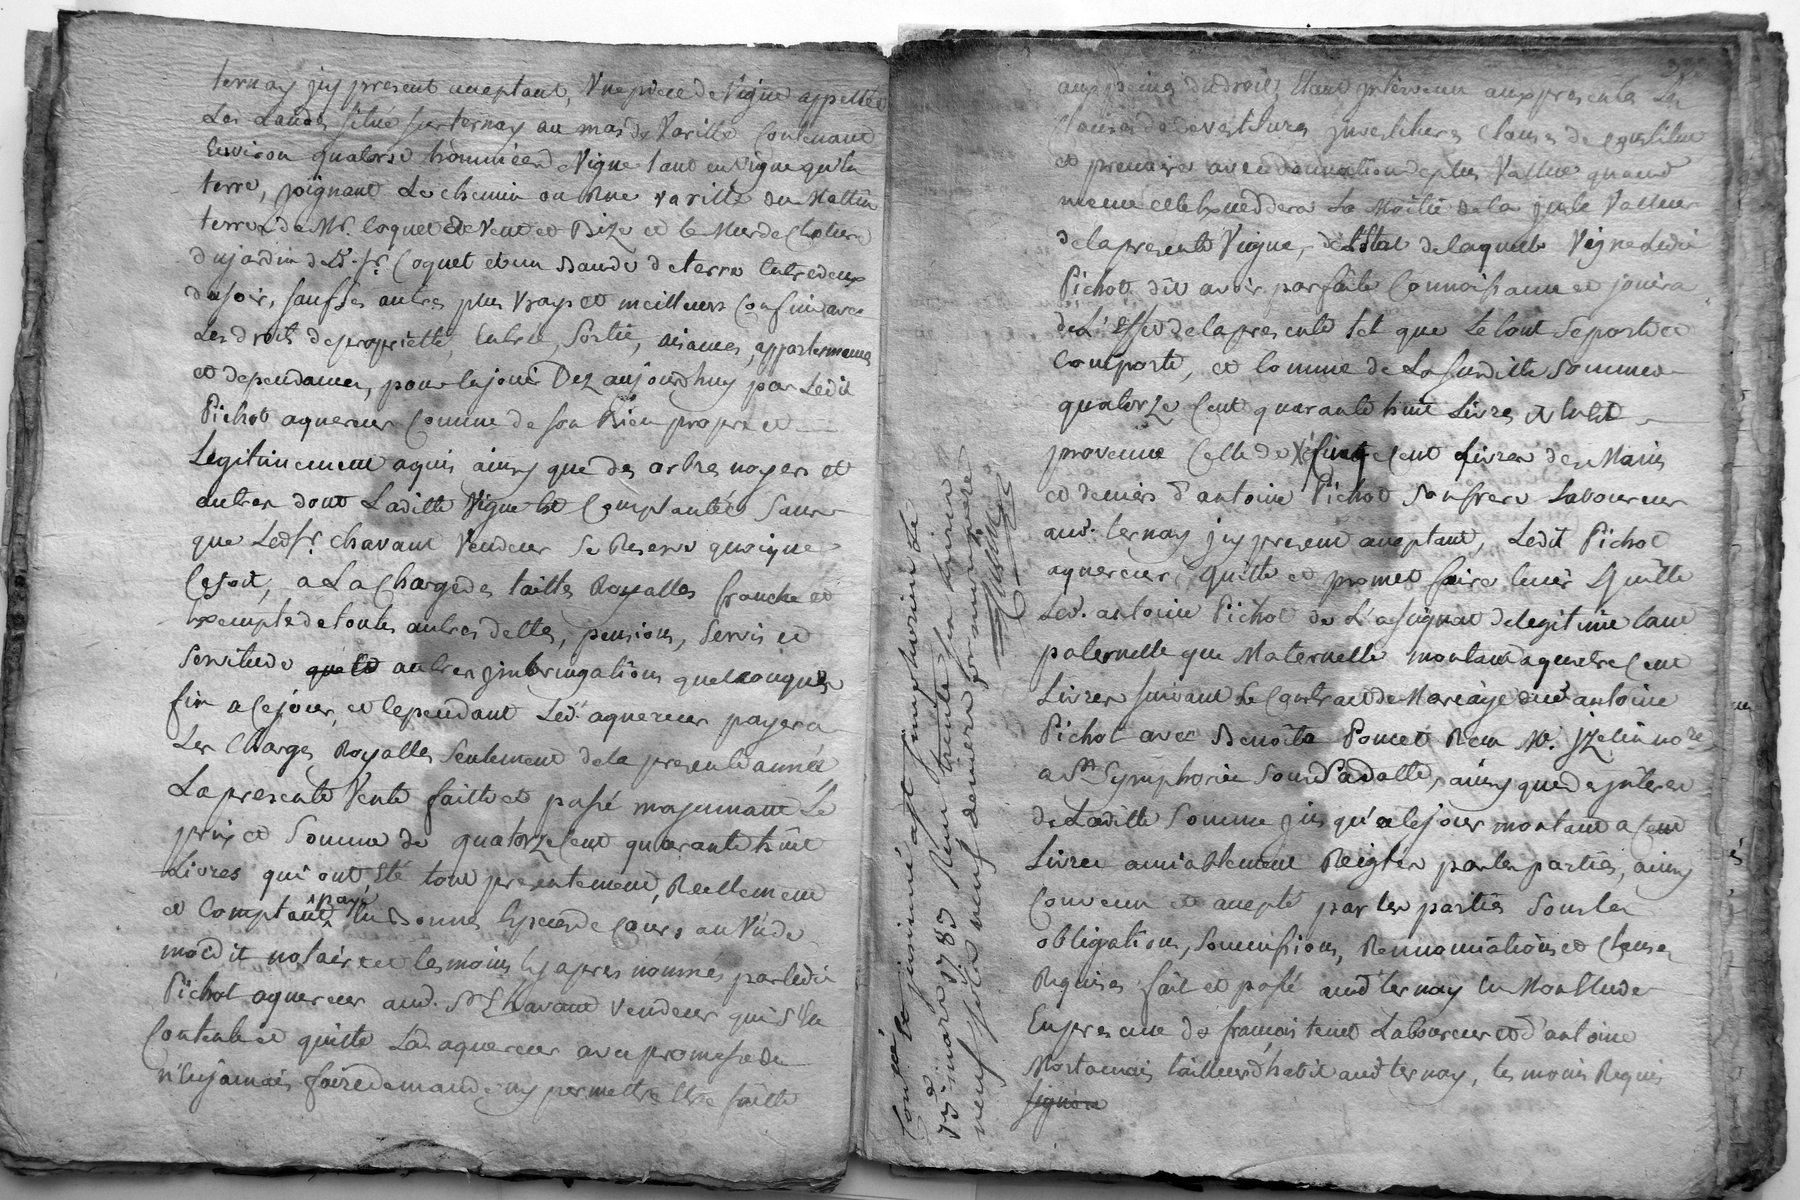 ternay jcy present aceptant, Une piece de Vigne appellée
Les Landes situé sur ternay au mas de Varille Contenant
Environ quatorse hommées de Vigne tant en vigne qu'en
terre, joignant Le chemin ou Rue varille du Mattin
terres de Mr. Coquet de Vent et Bize et le Mur de Cloture
du jardin dud. Sr. Coquet et un Bande de terre Entredeux
du soir, sauf ses autres plus Vrays et meilleurs Confins avec
Les droits de proprietté, Entrée, Sortie, aisances, appartenances
et dependances, pour En jouir Dez aujourdhuy par Ledit
Pichot aquereur Comme de son Bien propre et
Legitimement aquis ainsy que des arbres noyers et
autres dont Laditte Vigne Est Complantée Sans
que Led. Sr. chavant Vendeur se Reserve quoique
Ce soit, a La Charge des tailles Royalles franche et
Exempte de toutes autres dettes, pensions, Servis et
Servitude autres jmbringations quelconques
fin a Ce jour, et Cependant Led. aquereur payera
Les Charges Royalles seulement de la presente année
La presente Vente faitte et passé moyennant Le
prix et Somme de quatorze Cent quarante huit
Livres qui ont Eté tout presentement, Reellement
et Comptant payé En Bonnes Especes de Cours au Vû de
moidit notaire et temoins Cy apres nommés par Ledit
Pichot aquereur aud. Sr. Chavant Vendeur qui S'En
Contente et quitte Led. aquereur avec promesse de
n'En jamais faire demande ny permettre Etre faitte
aux peines du droit, Etant jntervenu aux presentes Les
Clauses de devestitures jnvestitures Clauses de Constitue
et precaire avec donnation de plus Vallue quand
meme elle Exceddera La Moitié de la juste Valleur
de la presente Vigne, de L'Etat de laquelle Vigne Ledit
Pichot dit avoir parfaite Connoissance et jouira
de L'Effet de la presente tel que Le tout Se porte et
Comporte, et Comme de La susditte Sommes
quatorze Cent quarante huit Livres
provenue Celle de Cinq Cent Livres des Mains
et deniers d'antoine Pichot son frere Laboureur
aud. ternay jcy present aceptant, Ledit Pichot
aquereur quitte et promet faire tenir Quitte
Led. antoine Pichot de L'assignat de legitime tant
paternelle que Maternelle montant a quatre Cent
Livres suivant Le Contract de Mariage dud. antoine
Pichot avec Benoîte Pomet Reçu Me. jzelin nore.
a St. Symphorien Sous Sa datte, ainsy que des jnterets
de Laditte Somme jusqu'a Ce jour montant a Cent
Livres amiablement Reigler par les parties, ainsy
Convenu et accepté par les parties Sous les
obligations, Soumissions, Rennonciations et Clauses
Requises fait et passé aud. ternay En Mon Etude
En presence de françois tenet Laboureur et d'antoine
Mortamais tailleur d'habit aud. ternay, temoins Requis
signer
Contrôlé et insinué a St Simphorien Le
13 mars 1783 Reçu trente six livres
neuf sols neuf deniers